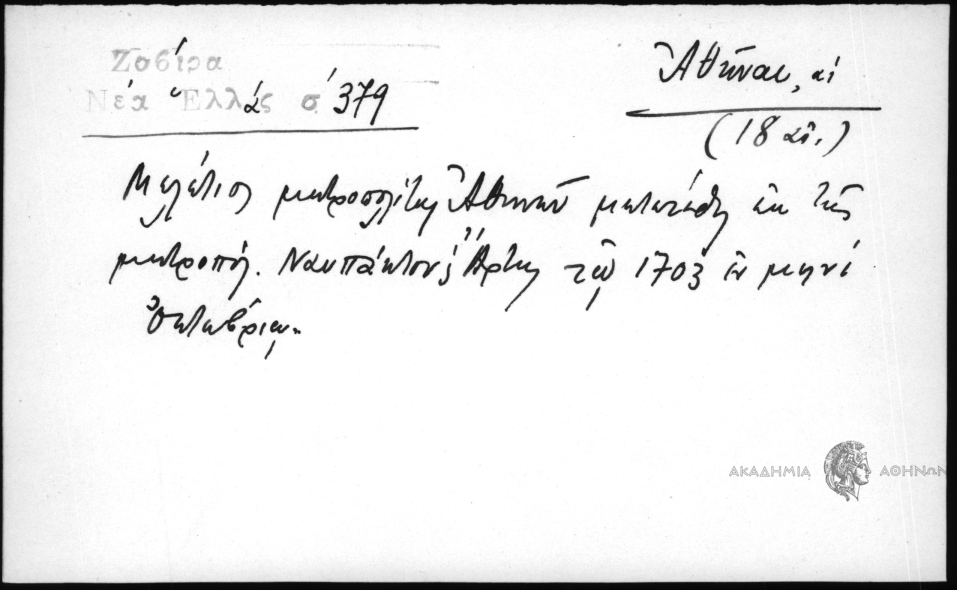 Ζαβίρα
Νέα Ἑλλάς σ 379
Ἀθῆναι, αἱ
(18 αἰ.)
Μελέτιος μητροπολίτης Ἀθηνῶν μετετέθη ἐκ τῆς
μητροπόλ. Ναυπάκτου Ἄρτης τῷ 1703 ἐν μηνὶ
Ὀκτωβρίῳ.
ΑΚΑΔΗΜΙΑ ΑΘΗΝΩΝ